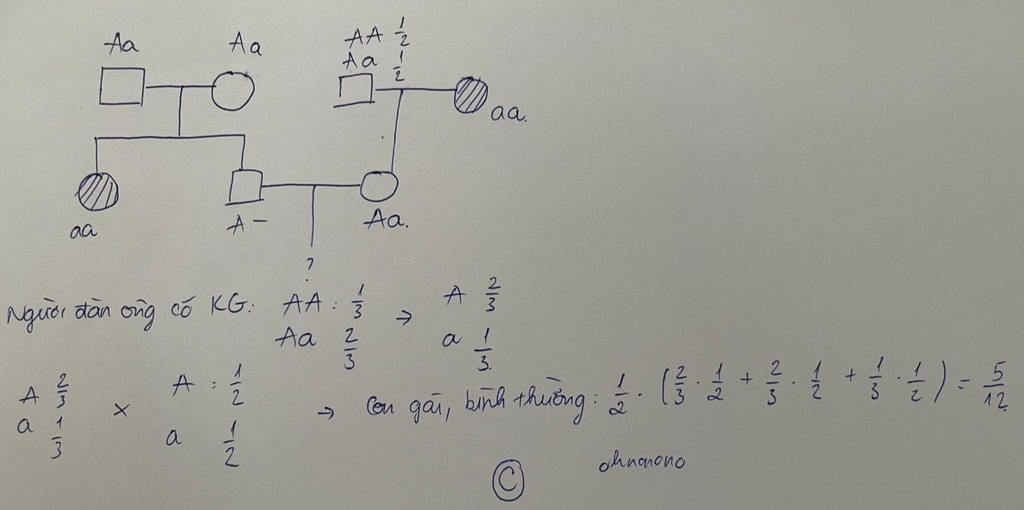 Aa Aa AA 1/2
Aa 1/2
aa.
aa A- Aa.
?
Người đàn ông có KG: AA : 1/3 → A 2/3
Aa 2/3 a 1/3.
A 2/3 × A : 1/2 → Con gái, bình thường: 1/2 . (2/3 . 1/2 + 2/3 . 1/2 + 1/3 . 1/2) = 5/12
a 1/3 a 1/2
C ohnonono